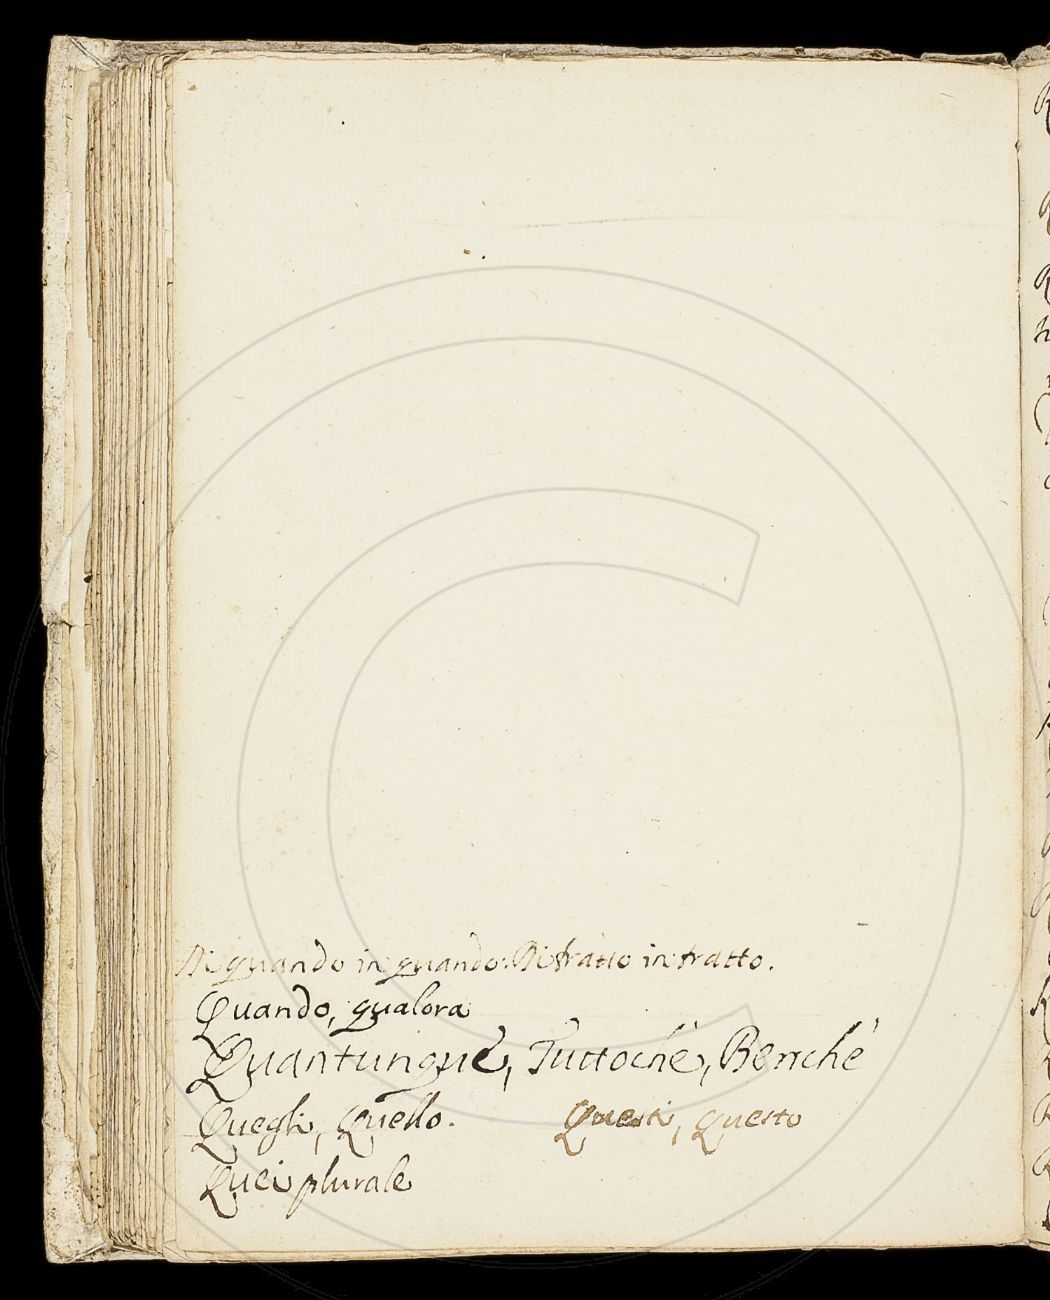 Di quando in quando. Di tratto in tratto.
Quando, qualora
Quantunque, Tuttochè, Benchè
Quegli, Quello. Questi, questo
Quei plurale